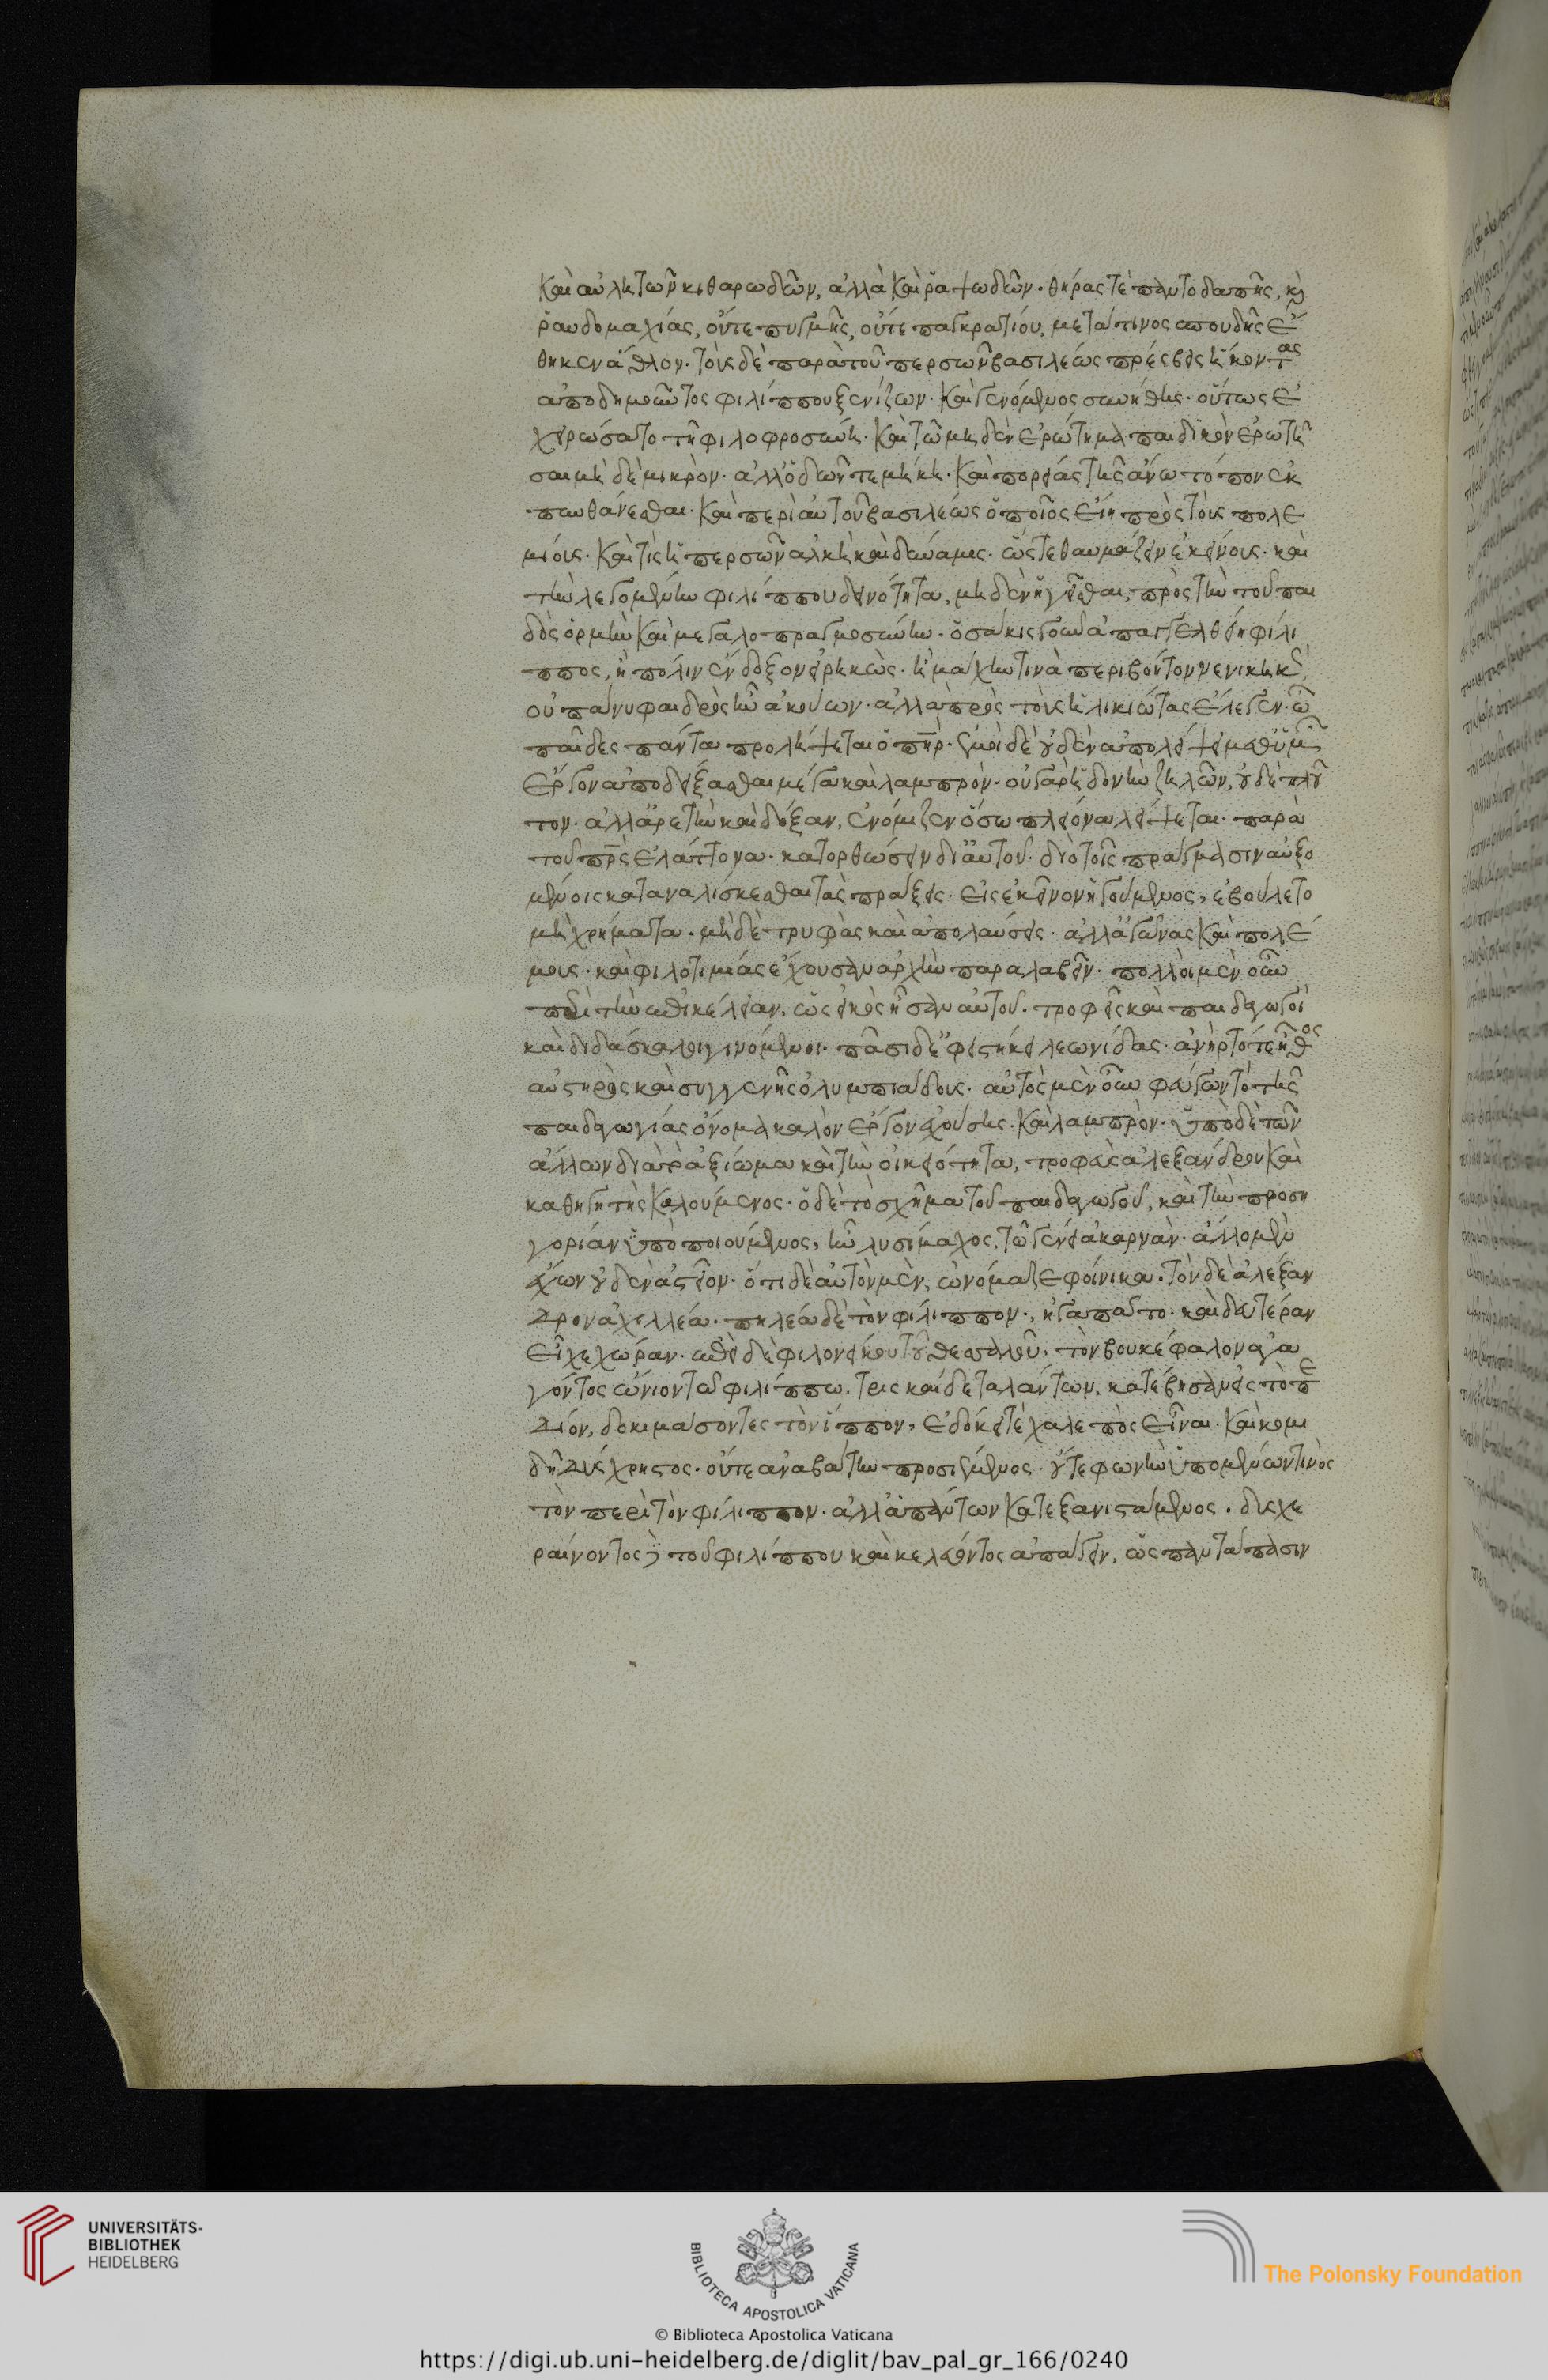 καὶ αὐλητῶν κιθαρωδῶν, ἀλλὰ καὶ ῥαψωδῶν· θήρας τὲ παντοδαπῆς, κ
ῥαυδομαχίας, οὔτε πυγμῆς, οὔτε παγκρατίου, μετά τινος σπουδῆς ἔ
θηκεν ἆθλον· τοὺς δὲ παρὰ τοῦ περσῶν βασιλέως πρέσβεις ἥκοντας
ἀποδημοῦντος φιλίππου ξενίζων· καὶ γενόμενος συνήθης· οὕτως ἐ
χειρώσατο τῆ φιλοφροσύνη· καὶ τῶ μηδὲν ἐρώτημα παιδικὸν ἐρωτῆ
σαι μὴ δὲ μικρὸν· ἀλλ' ὁδῶν τε μήκη· καὶ πορείας τῆς ἄνω τόπον ἐκ
πυνθάνεσθαι· καὶ περὶ αὐτοῦ βασιλέως ὁποῖος εἴη πρὸς τοὺς πολε
μίους· καὶ τίς ἡ περσῶν ἀλκὴ καὶ δύναμις· ὥστε θαυμάζειν ἐκείνους· καὶ
τὴν λεγομένην φιλίππου δεινότητα, μηδὲν ἡγεῖσθαι, πρὸς τὴν τοῦ παι
δὸς ὁρμὴν καὶ μεγαλοπραγμοσύνην· ὁσάκις γοῦν ἀπαγγελθείη φίλι
ππος, ἢ πόλιν ἔνδοξον εἰρηκὼς· ἢ μάχην τινὰ περιβόητον νενικηκ
οὐ πάνυ φαιδρὸς ἦν ἀκούων· ἀλλὰ πρὸς τοὺς ἡλικιώτας ἔλεγεν· ὦ
παῖδες πάντα προλήψεται ὁ πηρ· ἐμοὶ δὲ οὐδὲν ἀπολείψει μεθ' ὑμ
ἔργον ἀποδείξασθαι μέγα καὶ λαμπρόν· οὐ γὰρ ἡδονὴν ζηλῶν, οὐδὲ πλοῦ
τον· ἀλλ' ἀρετὴν καὶ δόξαν, ἐνόμιζεν ὅσω πλείονα λείψεται· παρὰ
τοῦ πρς ἐλάττονα· κατορθώσειν δι' αὑτοῦ· διὸ τοῖς πράγμασιν αὐξο
μένοις καταναλίσκεσθαι τὰς πράξεις· εἰς ἐκεῖνον ἡγούμενος, ἐβούλετο
μὴ χρήματα· μὴ δὲ τρυφὰς καὶ ἀπολαύσεις· ἀλλ' ἀγῶνας καὶ πολέ
μους· καὶ φιλοτιμίας ἔχουσαν ἀρχὴν παραλαβεῖν· πολλοὶ μὲν οὖν
περὶ τὴν ἐπιμέλειαν, ὡς εἰκὸς ἦσαν αὐτοῦ· τροφεῖς καὶ παιδαγωγοὶ
καὶ διδάσκαλοι γινόμενοι· πᾶσι δ' ἐφειστήκει λεωνίδας· ἀνὴρ τό τε ἦθος
αὐστηρὸς καὶ συγγενὴς ὀλυμπιάδος· αὐτὸς μὲν οὖν φεύγων τὸ τῆς
παιδαγωγίας ὄνομα καλὸν ἔργον ἐχούσης· καὶ λαμπρὸν· ὑπὸ δὲ τῶν
ἄλλων διὰ τὸ ἀξίωμα καὶ τὴν οἰκειότητα, τροφεὺς ἀλεξάνδρου καὶ
καθηγητὴς καλούμενος· ὁ δὲ τὸ σχῆμα τοῦ παιδαγωγοῦ, καὶ τὴν προση
γορίαν ὑποποιούμενος, ἦν λυσίμαχος, τῶ γένει ἀκαρνὰν· ἄλλο μὲν
ἔχων οὐδὲν ἀστεῖον· ὅτι δὲ αὑτὸν μὲν, ὠνόμαζε φοίνικα· τὸν δὲ ἀλέξαν
δρον ἀχιλλέα· πηλέα δὲ τὸν φίλιππον·, ἠγαπᾶτο· καὶ δευτέραν
εἶχε χώραν· ἐπεὶ δὲ φιλονείκου τοῦ θεσσαλοῦ· τὸν βουκέφαλον ἀγα
γόντος ὤνιον τῶ φιλίππω, τρισκαίδεκα ταλάντων, κατέβησαν εἰς τὸ πε
δίον, δοκιμάσοντες τὸν ἵππον, ἐδόκει τὲ χαλεπὸς εἶναι· καὶ κομι
δῆ δύσχρηστος· οὔτε ἀναβάτην προσιέμενος· οὔτε φωνὴν ὑπομένων τινὸς
τὸν περὶ τὸν φίλιππον· ἀλλ' ἁπάντων κατεξανιστάμενος· δυσχε
ραίνοντος δὲ τοῦ φιλίππου καὶ κελεύοντος ἀπάγειν, ὡς παντάπασιν
UNIVERSITÄTS-
BIBLIOTHEK
HEIDELBERG
BIBLIOTECA APOSTOLICA VATICANA
The Polonsky Foundation
© Biblioteca Apostolica Vaticana
https://digi.ub.uni-heidelberg.de/diglit/bav_pal_gr_166/0240